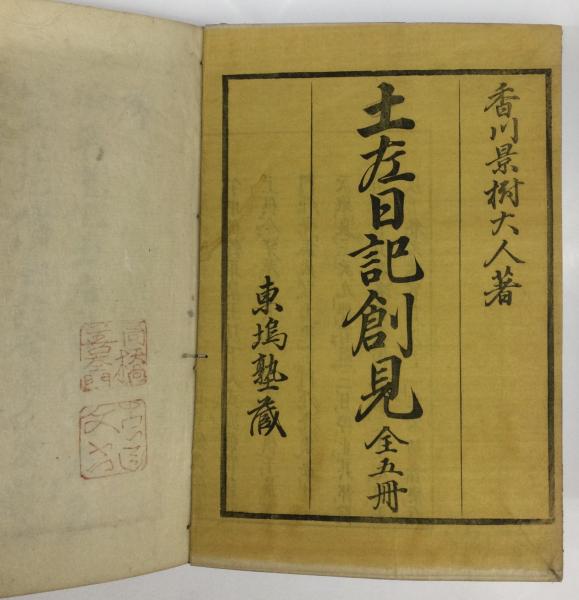 香川景樹大人著
土左日記創見 全五冊
東塢塾蔵